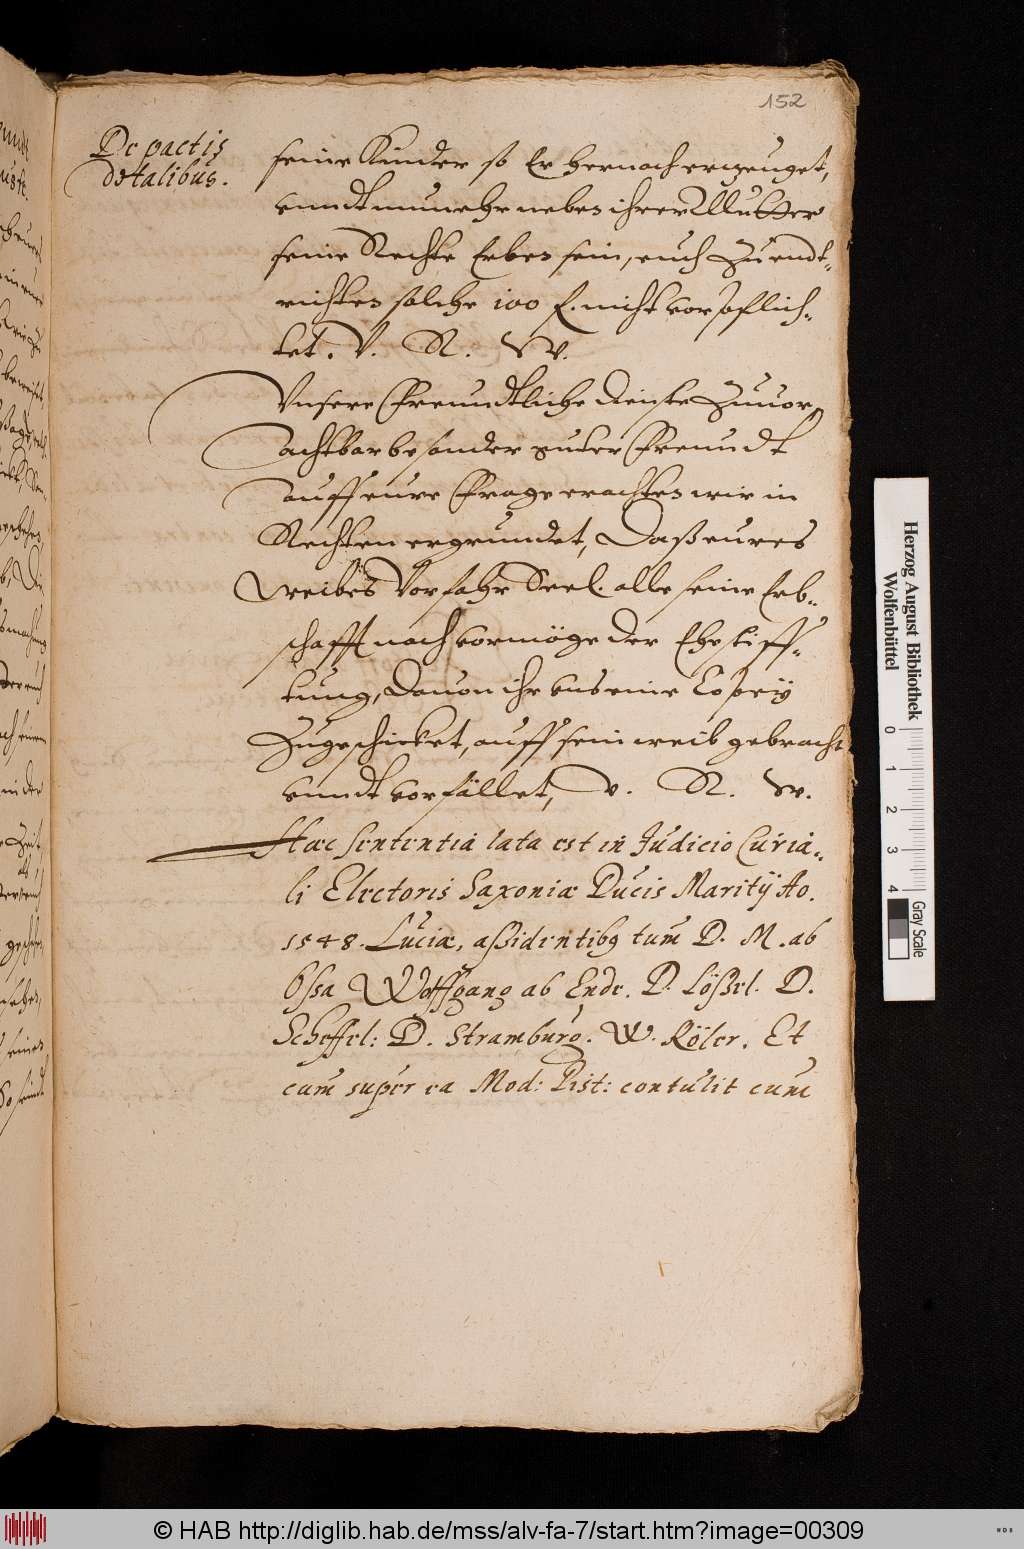 152
De pactis
dotalibus.
seine Kinder so Er hernach erzeuget,
vnndt nunmehr neben ihrer Mutter
seine Rechte Erben sein, euch Zu endt-
richten solche 100 f. nicht vorpflich-
tet. V. R. W.
Vnsere Freundtliche dienste Zuuor,
achtbar besonder guter Freundt
auff eure Frage erachten wir in
Rechten ergrundet, Daß eures
Weibes Vorfahr Seel. alle seine Erb-
schafft nach vormöge der Ehestiff-
tung, Dauon ihr vns eine Copey
Zugeschicket, auff sein weib gebracht
vnndt vorfället, V. R. W.
Hæc sententia lata est in Judicio Curia-
li Electoris Saxoniæ Ducis Maritÿ Ao.
1548. Luciæ, aßidentibq tum D. M. ab
Ossa Wolffgang ab Ende. D. Lößel. D.
Scheffel: D. Stramburg. W. Köler. Et
cum super ea Mod: Pist: contulit cum
Herzog August Bibliothek
Wolfenbüttel
0 1 2 3 4
Gray Scale
© HAB http://diglib.hab.de/mss/alv-fa-7/start.htm?image=00309